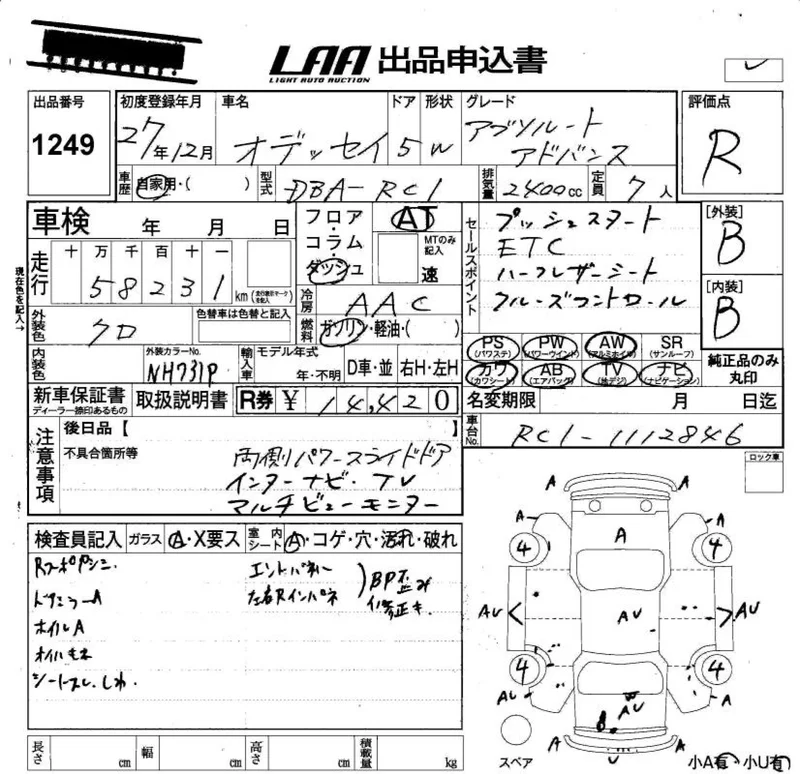 LAA 出品申込書
LIGHT AUTO AUCTION
出品番号 初度登録年月 車名 ドア 形状 グレード 評価点
1249 27年12月 オデッセイ 5 W アブソルート アドバンス R
車歴 自家用・( ) 型式 DBA-RC1 排気量 2400cc 定員 7人
車検 年 月 日 フロア・コラム・ダッシュ AT MTのみ記入 速
走行 十 万 千 百 十 一
58231 km (走行表示マークを記入)
現在色を記入→
セールスポイント プッシュスタート
ETC
ハーフレザーシート
クルーズコントロール
[外装] B
[内装] B
冷房 AAC
燃料 ガソリン・軽油・( )
外装色 クロ 色替車は色替と記入
内装色 外装カラーNo. NH731P 輸入車 モデル年式 年・不明 D車・並 右H・左H
PS (パワステ) PW (パワーウインド) AW (アルミホイル) SR (サンルーフ)
カワ (カワシート) AB (エアバッグ) TV (地デジ) ナビ (ナビゲーション)
純正品のみ丸印
新車保証書 ディーラー捺印あるもの 取扱説明書 R券 ¥ 14,420
名変期限 月 日迄
車台No. RC1-1112846
注意事項 後日品【 】
不具合箇所等 両側パワースライドドア
インターナビ・TV
マルチビューモニター
ロック車
検査員記入 ガラス A・X要ス 室内シート A・コゲ・穴・汚れ・破れ
エンドパネル
左右Rインパネ
BP歪み
修正キ
ホイルA
A A
A A A
4 4
AU AU AU
4 4
A A
AU AU A
A U A
スペア 小A有・小U有
長さ cm 幅 cm 高さ cm 積載量 kg